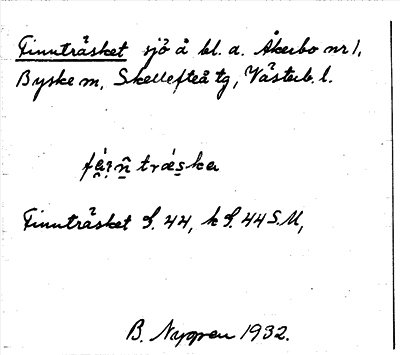 Finnträsket sjö å bl. a. Åkerbo nr 1,
Byske m, Skellefteå tg, Västerb. l.
Finnträsket S. 44, k S. 44 S.M,
B. Nygren 1932.